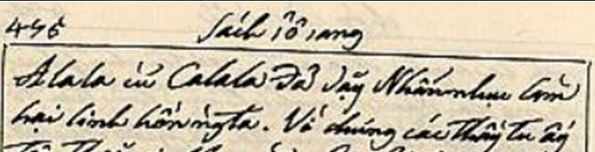 Sách sổ sang
Alala cũ Calala Đã dạy Nhẫn nhục làm
hại linh hồn ngta. Vố chúng các thầy tu ấy